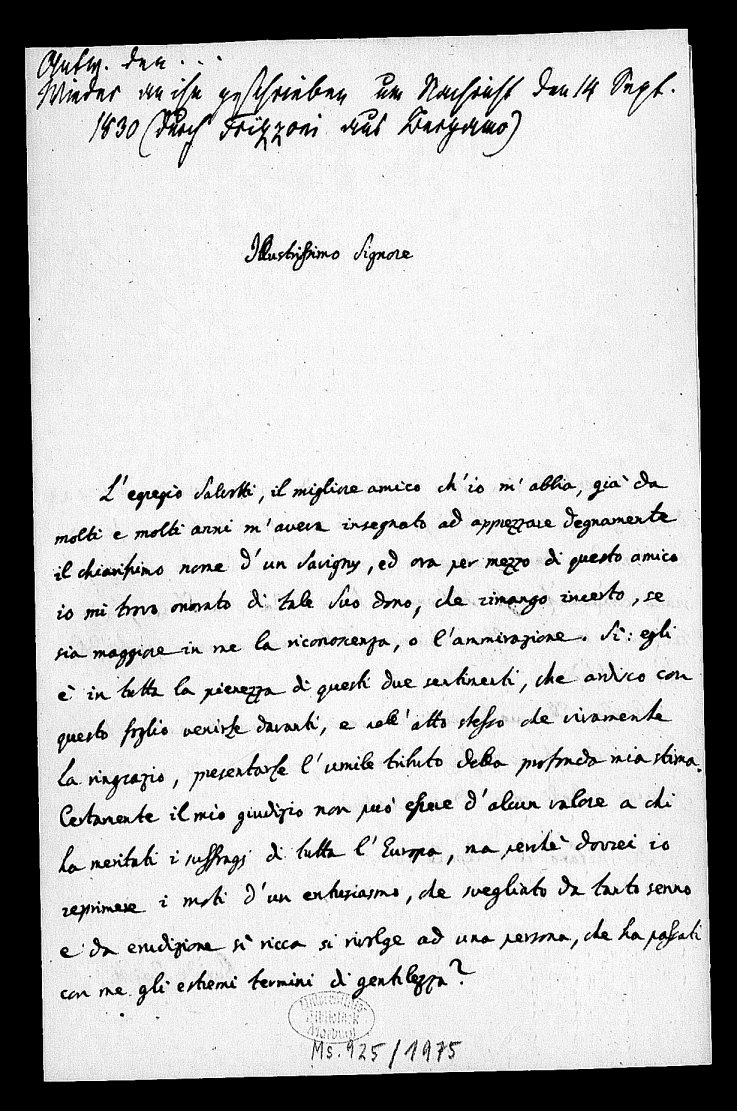 Antw. den . . .
Wieder an ihn geschrieben um Nachricht den 14 Sept.
1830 (durch Frizzoni aus Bergamo)
Illustrissimo Signore
L'egregio Salvotti, il migliore amico ch'io m'abbia, già da
molti e molti anni m'aveva insegnato ad apprezzare degnamente
il chiarissimo nome d'un Savigny, ed ora per mezzo di questo amico
io mi trovo onorato di tale suo dono, che rimango incerto, se
sia maggiore in me la riconoscenza, o l'ammirazione. Sì: egli
è in tutta la pienezza di questi due sentimenti, che ardisco con
questo foglio venirle davanti, e nell'atto stesso che vivamente
La ringrazio, presentarle l'umile tributo della profonda mia stima.
Certamente il mio giudizio non può essere d'alcun valore a chi
ha meritati i suffragj di tutta l'Europa, ma perchè dovrei io
reprimere i moti d'un entusiasmo, che svegliato da tanto senno
e da erudizione sì ricca si rivolge ad una persona, che ha passati
con me gli estremi termini di gentilezza?
Universitäts-
Bibliothek
Marburg
Ms. 925/1975